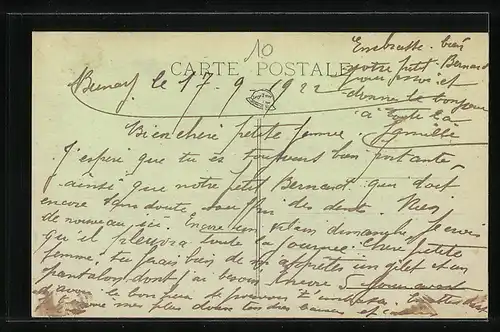 10
CARTE POSTALE
Embrasse bien
notre petit Bernard
pour moi et
donne le bonjour
à toute la
famille
le 17 - 9 - 1922
Bien chère petite femme
J'espère que tu es toujours bien portante
ainsi que notre petit Bernard qui doit
encore sans doute souffrir des dents. Rien
de nouveau ici. Encore un vilain dimanche je crois
qu'il pleuvra toute la journée. Chère petite
femme, tu feras bien de m'apprêter un gilet et un
pantalon dont j'ai besoin
d'avoir le bonheur de pouvoir t'embrasser
mes plus doux tendres baisers